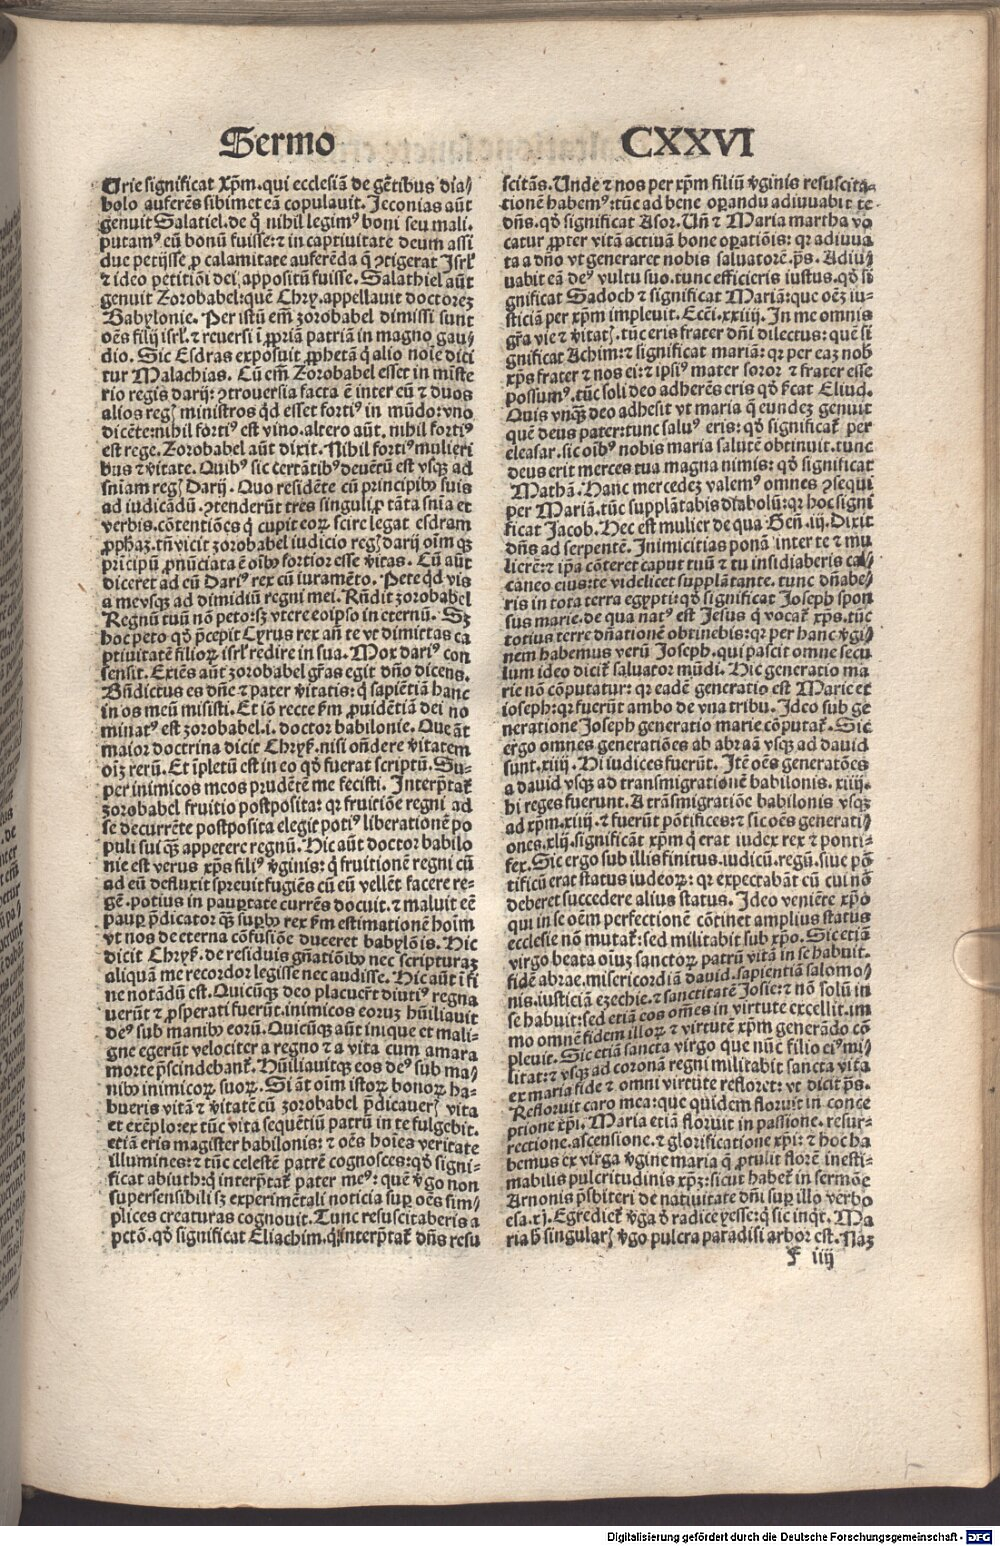 Sermo CXXVI
Urie significat xp̄m. qui ecclesiā de gētibus dia⸗
bolo auferēs sibimet eā copulauit. Jeconias aūt
genuit Salatiel. de q̄ nihil legimꝰ boni seu mali.
putamꝰ eū bonū fuisse: ⁊ in captiuitate deum assi
due petijsse ꝓ calamitate auferēda q̄ ↄtigerat Isrl'
⁊ ideo petitiōi dei appositū fuisse. Salathiel aūt
genuit Zorobabel: quē Chry. appellauit doctorez
Babylonie. Per istū em̄ zorobabel dimissi sunt
oēs filij isrl'. ⁊ reuersi ī ꝓpriā patriā in magno gau⸗
dio. Sic Esdras exposuit ꝓphetā q̄ alio noīe dici
tur Malachias. Cū em̄ Zorobabel esset in mīste
rio regis darij: ↄtrouersia facta ē inter eū ⁊ duos
alios regꝭ ministros qd̄ esset fortiꝰ in mūdo: vno
dicēte: nihil fortiꝰ est vino. altero aūt. nihil fortiꝰ
est rege. Zorobabel aūt dixit. Nihil fortiꝰ mulieri
bus ⁊ v̄itate. Quibꝰ sic certātibꝰ deuētū est vsqꝫ ad
sniam regꝭ Darij. Quo residēte cū principibꝰ suis
ad iudicādū. ↄtenderūt tres singuli ꝓ tāta snīa et
verbis. cōtentiōes q̄ cupit eoꝝ scire legat esdram
ꝓphaz. tn̄ vicit zorobabel iudicio regꝭ darij oīm qꝫ
pricipū ꝓnūciata ē oībꝰ fortior esse v̄itas. Cū aūt
diceret ad eū Dariꝰ rex cū iuramēto. Pete qd̄ vis
a me vsqꝫ ad dimidiū regni mei. Rn̄dit zorobabel
Regnū tuū nō peto: sꝫ vtere eo ipso in eternū. Sꝫ
hoc peto qd̄ p̄cepit Cyrus rex an̄ te vt dimittas ca
ptiuitatē filioꝝ isrl' redire in sua. Mox dariꝰ con
sensit. Exiēs aūt zorobabel gr̄as egit dn̄o dicens.
Bn̄dictus es dn̄e ⁊ pater v̄itatis: q̄ sapiētiā hanc
in os meū misisti. Et iō recte ẜm ꝓuidētiā dei no
minatꝰ est zorobabel. i. doctor babilonie. Que āt
maior doctrina dicit Chryẜ. nisi on̄dere v̄itatem
oīꝫ rerū. Et īpletū est in eo qd̄ fuerat scriptū. Su⸗
per inimicos meos prudētē me fecisti. Interp̄tat̄
zorobabel fruitio postposita: qꝛ fruitiōe regni ad
se decurrēte postposita elegit potiꝰ liberationē po
puli sui qꝫ appetere regnū. Hic aūt doctor babilo
nie est verus xp̄s filiꝰ v̄ginis: q̄ fruitionē regni cū
ad eū defluxit spreuit fugiēs cū eū vellēt facere re⸗
gē. potius in paup̄tate currēs docuit. ⁊ maluit eē
paup̄ p̄dicator qꝫ sup̄bꝰ rex ẜm estimationē hoīm
vt nos de eterna cōfusiōe duceret babylōis. Hic
dicit Chryẜ. de residuis gn̄atiōibꝰ nec scripturaꝫ
aliquam me recordor legisse nec audisse. Hic aūt ī fi
ne notādū est. Quicūqꝫ deo placuert̄ diutiꝰ regna
uerūt ⁊ ꝓsperati fuerūt. inimicos eoruꝫ hūiliauit
deꝰ sub manibꝰ eorū. Quicūqꝫ aūt inique et mali⸗
gne egerūt velociter a regno ⁊ a vita cum amara
morte p̄scindebant̄. Hūiliauitqꝫ eos deꝰ sub ma⸗
nibꝰ inimicoꝝ suoꝝ. Si āt oīm istoꝝ bonoꝝ ha⸗
bueris vitā ⁊ v̄itatē cū zorobabel p̄dicauerꝭ vita
et exēplo. rex tūc vita sequētiū patrū in te fulgebit.
etiā eris magister babilonis: ⁊ oēs hoīes veritate
illumines: ⁊ tūc celestē patrē cognosces: qd̄ signi⸗
ficat abiuth: q̄ interp̄tat̄ pater meꝰ: quē v̄go non
supersensibili sꝫ experimētali noticia sup̄ oēs sim⸗
plices creaturas cognouit. Tunc resuscitaberis a
pctō. qd̄ significat Eliachim. q̄ interp̄tat̄ dn̄s resu
scitās. Unde ⁊ nos per xp̄m filiū v̄ginis resuscita⸗
tionē habemꝰ: tūc ad bene oꝑandu adiuuabit te
dn̄s. qd̄ significat Asor. Un̄ ⁊ Maria martha vo
catur ꝓpter vitā actiuā bone oꝑatiōis: qꝛ adiuua
ta a dn̄o vt generaret nobis saluatorē. p̄s. Adiu⸗
uabit eā deꝰ vultu suo. tunc efficieris iustus. qd̄ si
gnificat Sadoch ⁊ significat Mariā: que oēꝫ iu⸗
sticiā per xp̄m impleuit. Ecc̄i. xxiiij. In me omnis
gr̄a vie ⁊ v̄itatꝭ. tūc eris frater dn̄i dilectus: que si
gnificat Achim: ⁊ significat mariā: qꝛ per eaꝫ nob̄
xp̄s frater ⁊ nos ei: ⁊ ipsiꝰ mater soror ⁊ frater esse
possumꝰ. tūc soli deo adherēs eris qd̄ ẜcat Eliud.
Quis vnqꝫ deo adhesit vt maria q̄ eundeꝫ genuit
quē deus pater: tunc saluꝰ eris: qd̄ significat̄ per
eleasar. sic oībꝰ nobis maria salutē obtinuit. tunc
deus erit merces tua magna nimis: qd̄ significat
Mathā. Hanc mercedeꝫ valemꝰ omnes ↄsequi
per Mariā. tūc supplātabis diabolū: qꝛ hoc signi
ficat Jacob. Hec est mulier de qua Gen̄. iij. Dixit
dn̄s ad serpentē. Inimicitias ponā inter te ⁊ mu
lierē: ⁊ ip̄a cōteret caput tuū ⁊ tu insidiaberis cal⸗
caneo eius: te videlicet supplātante. tunc dn̄abe⸗
ris in tota terra egypti: qd̄ significat Joseph spon
sus marie. de qua natꝰ est Jesus q̄ vocat̄ xp̄s. tūc
totius terre dn̄ationē obtinebis: qꝛ per hanc v̄gi⸗
nem habemus verū Joseph. qui pascit omne secu
lum ideo dicit̄ saluator mūdi. Hic generatio ma
rie nō cōputatur: qꝛ eadē generatio est Marie et
ioseph: qꝛ fuerūt ambo de vna tribu. Ideo sub ge
neratione Joseph generatio marie cōputat̄. Sic
ergo omnes generatiōes ab abraā vsqꝫ ad dauid
sunt. xiiij. Hi iudices fuerūt. Itē oēs generatōes
a dauid vsqꝫ ad transmigrationē babilonis. xiiij.
hi reges fuerunt. A trāsmigratiōe babilonis vsqꝫ
ad xp̄m. xiiij. ⁊ fuerūt pōtifices: ⁊ sic oēs generati⸗
ones. xlij. significāt xp̄m q̄ erat iudex rex ⁊ ponti⸗
fex. Sic ergo sub illis finitus. iudicū. regū. siue pō
tificū erat status iudeoꝝ: qꝛ expectabāt cū cui nō
deberet succedere alius status. Ideo veniēte xp̄o
qui in se oēm perfectionē cōtinet amplius status
ecclesie nō mutat̄: sed militabit sub xp̄o. Sic etiā
virgo beata oīuꝫ sanctoꝝ patrū vitā in se habuit.
fidē abrae. misericordiā dauid. sapientiā salomo⸗
nis. iusticiā ezechie. ⁊ sanctitatē Josie: ⁊ nō solū in
se habuit: sed etiā eos omēs in virtute excellit. im
mo omnē fidem illoꝝ ⁊ virtutē xp̄m generādo cō
pleuit. Sic etiā sancta virgo que nūc filio eiꝰ mi⸗
litat: ⁊ vsqꝫ ad coronā regni militabit sancta vita
ex maria fide ⁊ omni virtute refloret: vt dicit p̄s.
Refloruit caro mea: que quidem floruit in conce
ptione xp̄i. Maria etiā floruit in passione. resur⸗
rectione. ascensione. ⁊ glorificatione xp̄i: ⁊ hoc ha
bemus ex virga v̄gine maria q̄ ꝓtulit florē inesti⸗
mabilis pulcritudinis xp̄ꝫ: sicut habet̄ in sermōe
Arnonis p̄sbiteri de natiuitate dn̄i sup̄ illo verbo
esa. xj. Egrediet̄ v̄ga d̄ radice yesse: q̄ sic inqt̄. Ma
ria h̄ singularꝭ v̄go pulcra paradisi arbor est. Naꝫ
f iiij
Digitalisierung gefördert durch die Deutsche Forschungsgemeinschaft - DFG